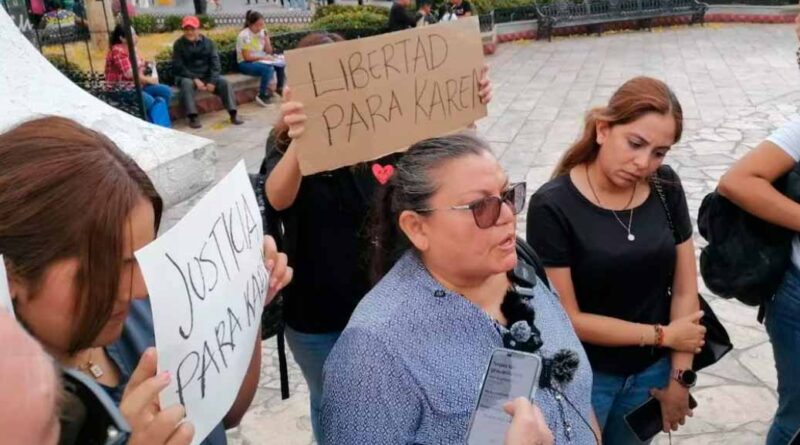 LIBERTAD
PARA KAREN
JUSTICIA
PARA KAREN